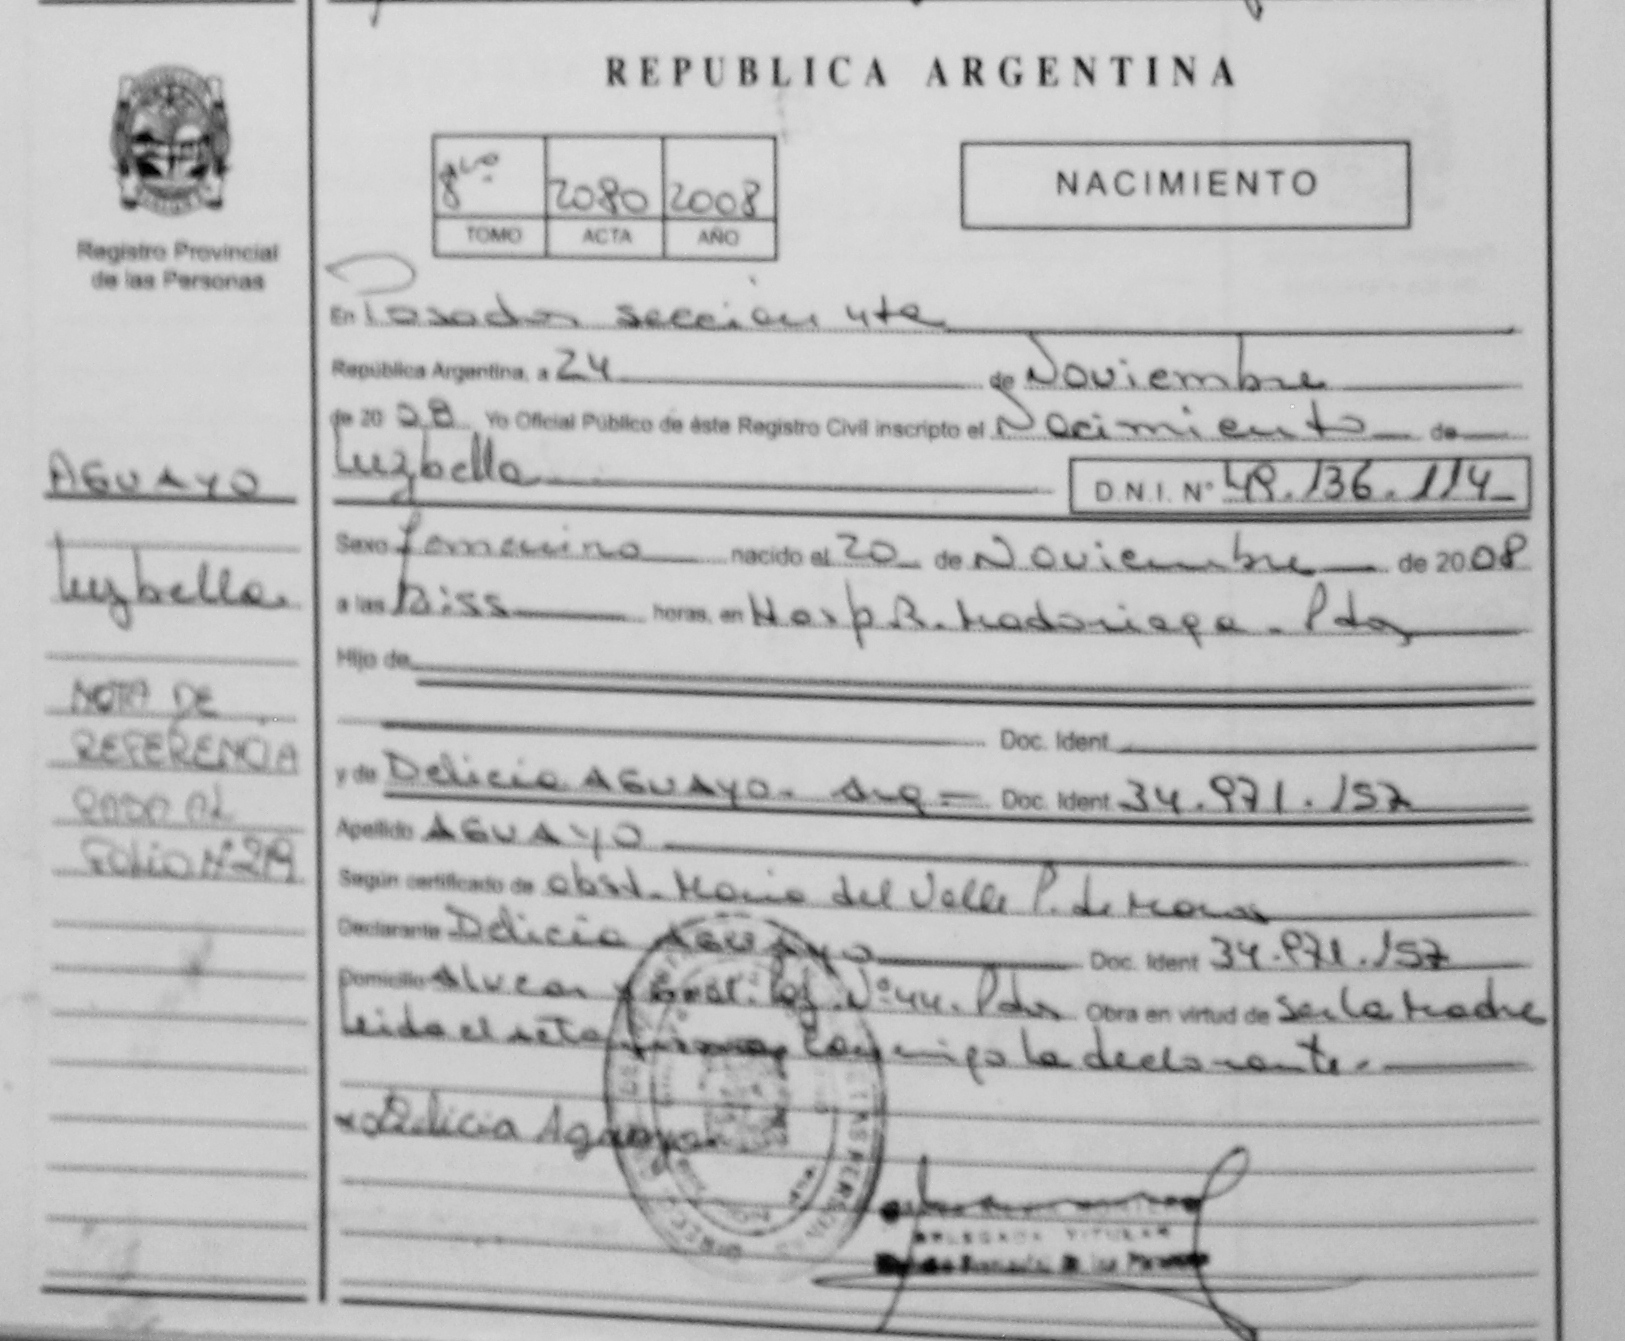 REPUBLICA ARGENTINA
Registro Provincial
de las Personas
8vo 2080 2008
TOMO ACTA AÑO
NACIMIENTO
En Posadas sección 4ta
República Argentina, a 24 de Noviembre
de 2008 Yo Oficial Público de éste Registro Civil inscripto el Nacimiento de
Luzbella D.N.I. Nº 49.136.114
Sexo femenino nacido el 20 de Noviembre de 2008
a las horas, en Hosp R. Madariaga - Pdas
Hijo de
Doc. Ident.
y de Delicia AGUAYO - Arg = Doc. Ident 34.971.157
Apellido AGUAYO
Según certificado de obst. Maria del Valle P. de
Declarante Delicia AGUAYO Doc. Ident 34.971.157
Domicilio Alvear y Nº 44. Pdas Obra en virtud de ser la Madre
leida el acta firma conmigo la declarante.
Delicia Aguayo
DELEGADA TITULAR
AGUAYO
Luzbella
NOTA DE
REFERENCIA
FOLIO Nº 219